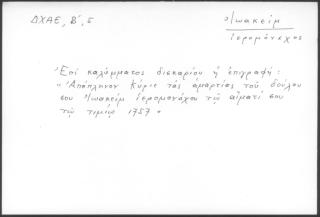 ΔΧΑΕ, Β', 5.
Ἰωακείμ
ἱερομόναχος
Ἐπί καλύμματος δισκαρίου ἡ ἐπιγραφή :
" Ἀπόπλυνον Κύριε τάς ἁμαρτίας τοῦ δούλου
σου Ἰωακείμ Ἱερομονάχου τῷ αἵματί σου
τῷ τιμίῳ 1757 "